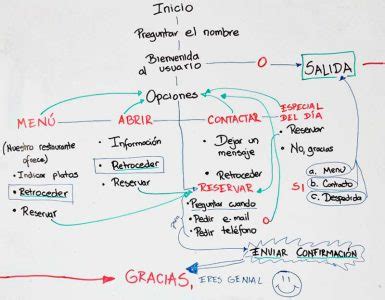 Inicio
Preguntar el nombre
Bienvenida
al usuario
O
SALIDA
Opciones
MENÚ
ABRIR
CONTACTAR
ESPECIAL
DEL DÍA
(Nuestro restaurante
ofrece)
• Indicar platos
• Retroceder
• Reservar
• Información
• Retroceder
• Reservar
• Dejar un
mensaje
• Retroceder
• Reservar
• No, gracias
RESERVAR
• Preguntar cuando
• Pedir e-mail
• Pedir teléfono
O
SI
a. Menú
b. Contacto
c. Despedida
ENVIAR CONFIRMACIÓN
GRACIAS, ERES GENIAL